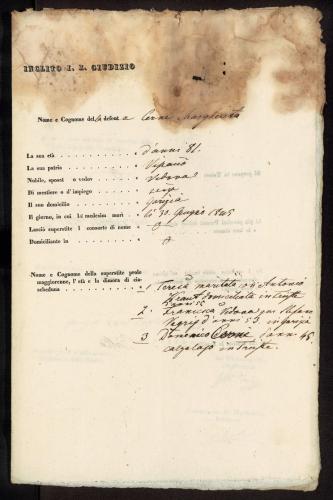 INCLITO I. R. GIUDIZIO
Nome e Cognome del defont a Cerne Margherita
La sua età d'anni 81.
La sua patria Vipacco
Nobile, sposat o vedov Vedova
Di mestiere o d'impiego
Il suo domicilio Gorizia
Il giorno, in cui la medesim morì li 30 Giugno 1845
Lasciò superstite l consorte di nome
Domiciliante in
Nome e Cognome della superstite prole
maggiorenne, l'età e la dimora di cia-
scheduna
1 Teresa maritata in Antonio
Kraut domiciliata in Trieste
d'anni
2. Francesca Vedova qm Stefano
d'anni 53. in Gorizia
3 Domenico Cerne d'anni 45
calzolajo in Trieste.